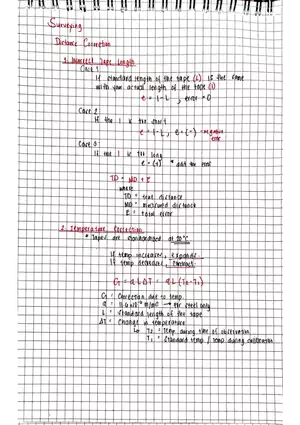 Surveying
Distance Correction
1. Incorrect Tape Length
Case 1
If standard length of the tape (L) is the same
with the actual length of the tape (l)
e = l - L , error = 0
Case 2
If the l is too short
e = l - L , e = (-) → negative
error
Case 3
If the l is too long
e = (+) * add the error
TD = MD + E
where
TD = true distance
MD = measured distance
E = total error
2. Temperature Correction
* Tapes are standardized at 20°C
If temp increases, expands
If temp decreases, contract
= αLΔT = αL (T₂ - T₁)
= Correction due to temp.
α = → for steel only
L = Standard length of the tape
ΔT = Change in temperature
↳ T₂ = Temp during time of observation
T₁ = Standard temp / temp during calibration